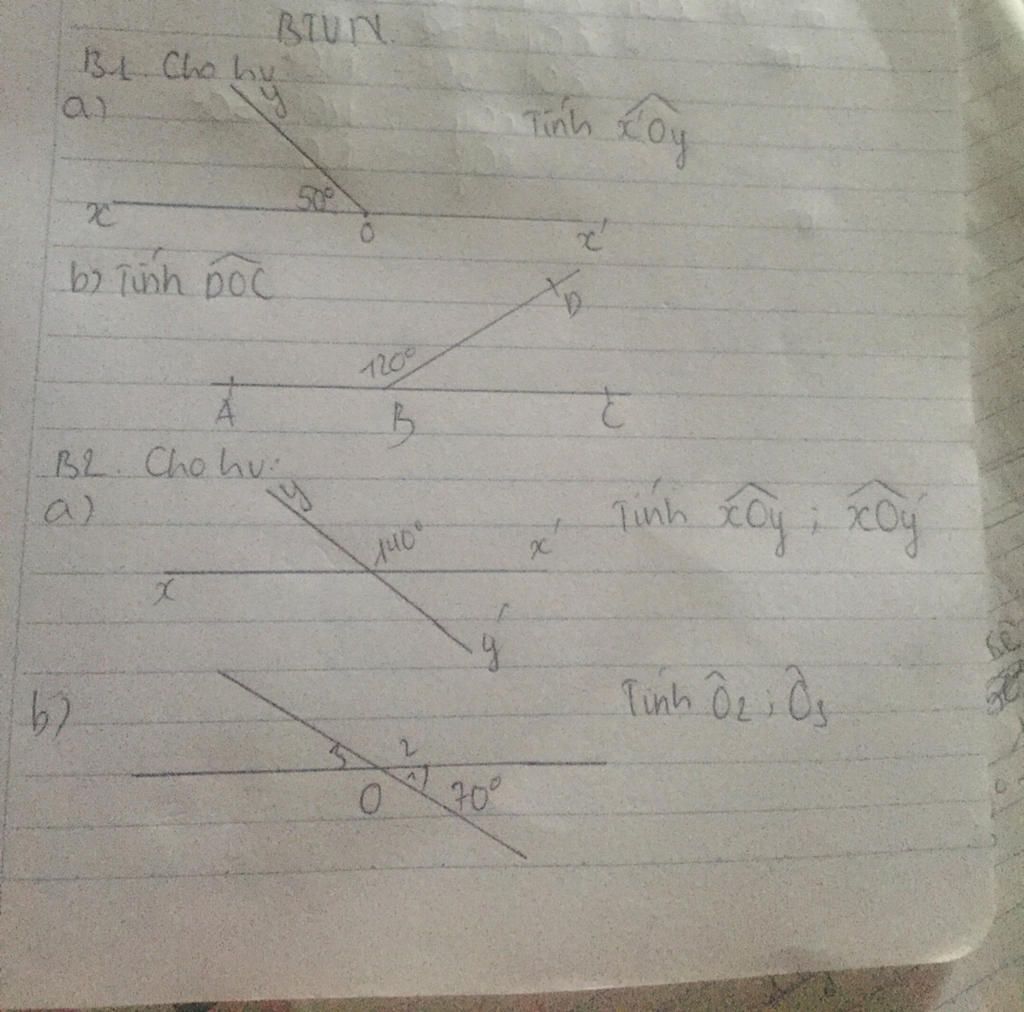 BTVN.
B1. Cho hv
a)
y
Tính x'Oy
50°
x
O
x'
b) Tính DOC
D
120°
A
B
C
B2. Cho hv:
a)
y
140°
x'
Tính xOy ; xOy'
x
y'
b)
Tính Ô2 ; Ô3
3
2
1
O
70°